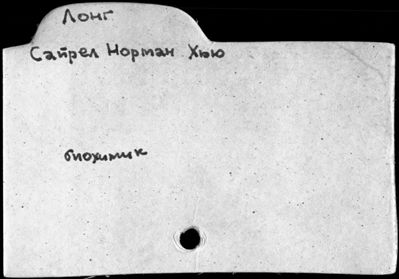 Лонг
Сайрел Норман Хью
биохимик